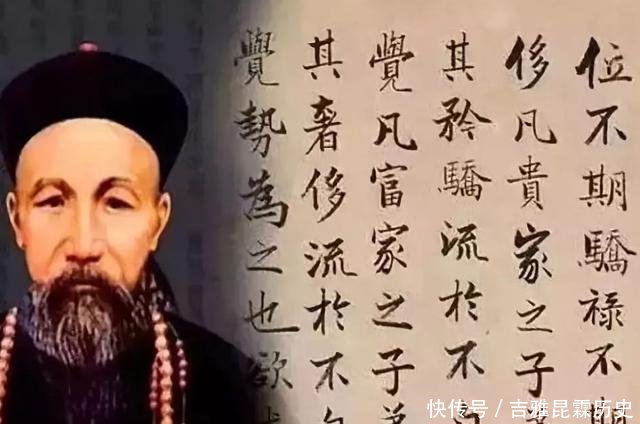 位不期驕禄不
侈凡貴家之子
其矜驕流於不
覺凡富家之子
其奢侈流於不
覺勢為之也欲
快传号/吉雅昆霖历史